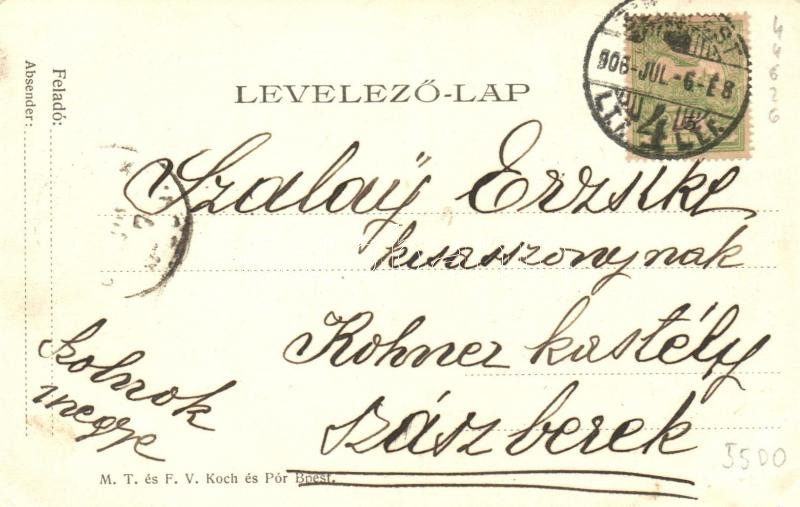 LEVELEZŐ-LAP
Feladó:
Absender:
906-JUL.-6-E8
4
Szalaÿ Erzsike
kisasszonynak
Kohner kastély
Szászberek
Szolnok
megye
M. T. és F. V. Koch és Pór Bpest.
5500
44626